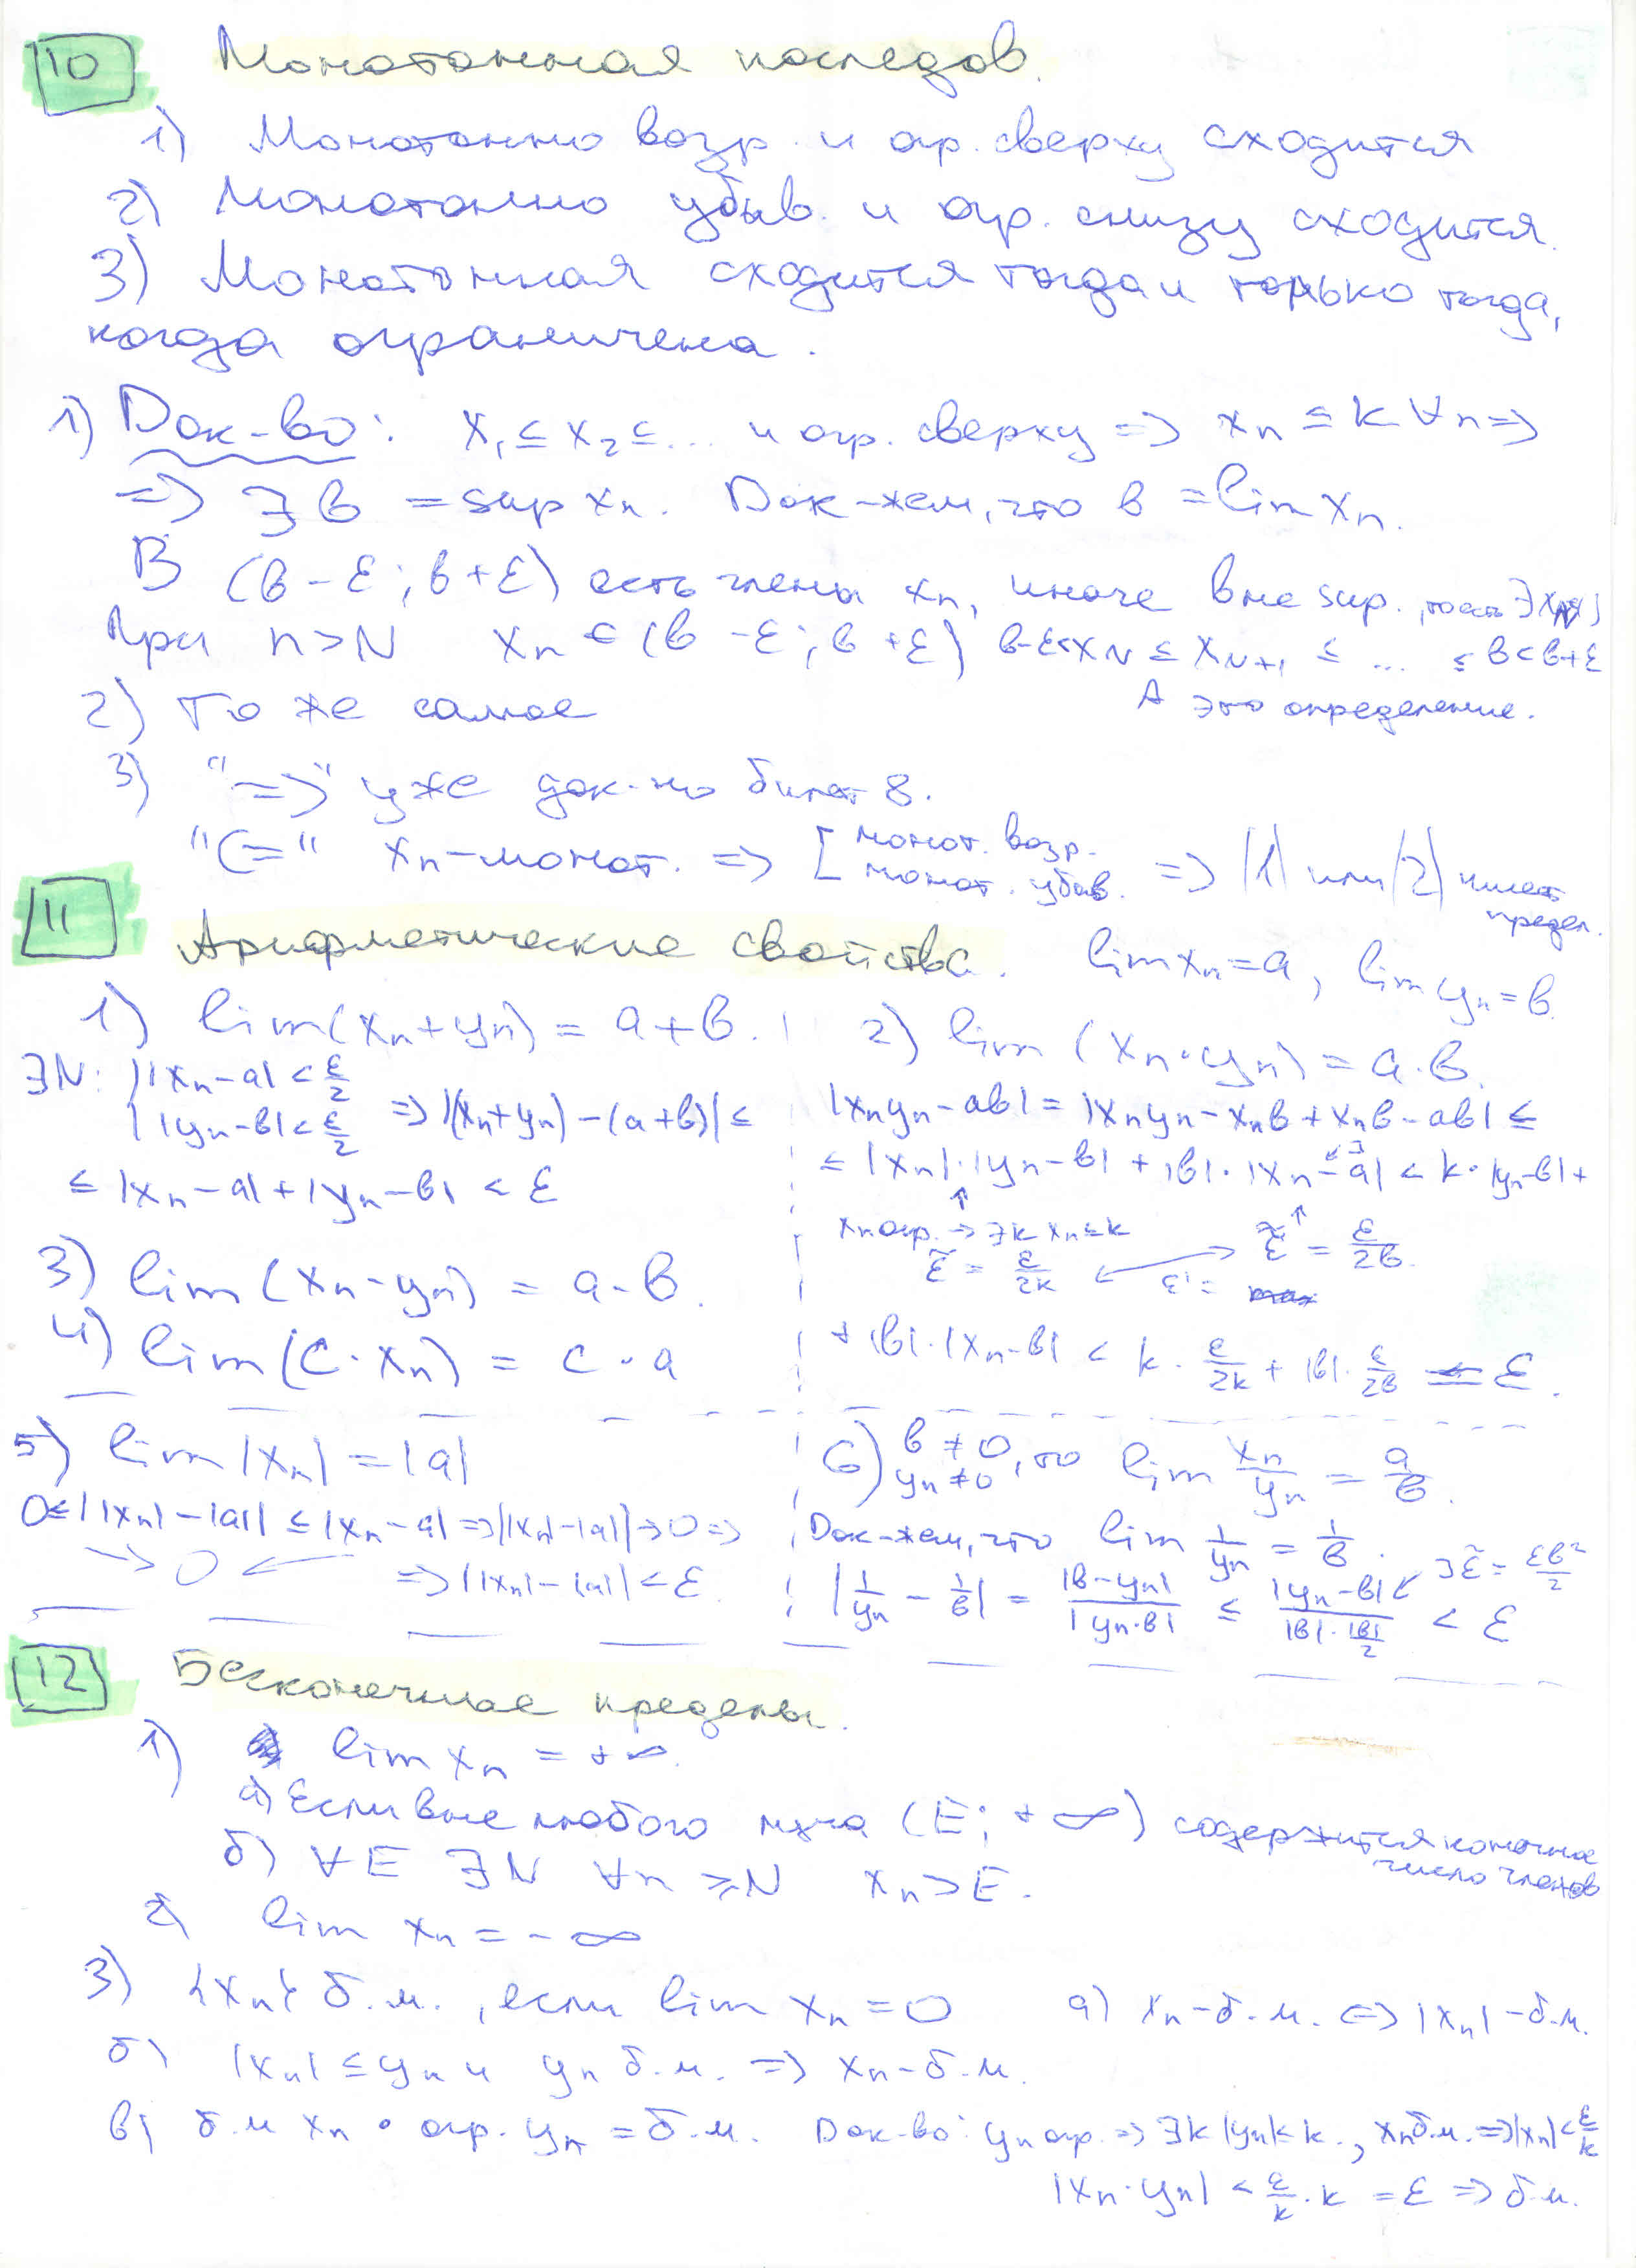 10 Монотонная последов.
1) Монотонно возр. и огр. сверху сходится
2) Монотонно убыв. и огр. снизу сходится.
3) Монотонная сходится тогда и только тогда,
когда ограничена.
1) Док-во: x₁ ≤ x₂ ≤ ... и огр. сверху => xₙ ≤ k ∀n =>
=> ∃ b = sup xₙ. Док-жем, что b = lim xₙ.
В (b - ε; b + ε) есть члены xₙ, иначе b не sup., то есть ∃ x_N
При n > N xₙ ∈ (b - ε; b + ε) b-ε < x_N ≤ x_{N+1} ≤ ... ≤ b < b+ε
А это определение.
2) То же самое
3) "=>" уже док-но билет 8.
"<=" xₙ - монот. => [ монот. возр. монот. убыв. => (1) или (2) имеет предел.
11 Арифметические свойства. lim xₙ = a, lim yₙ = b
1) lim(xₙ + yₙ) = a + b.
∃N: { |xₙ - a| < ε/2
|yₙ - b| < ε/2 => |(xₙ + yₙ) - (a + b)| ≤
≤ |xₙ - a| + |yₙ - b| < ε
3) lim(xₙ - yₙ) = a - b.
4) lim(c · xₙ) = c · a
2) lim (xₙ · yₙ) = a · b.
|xₙyₙ - ab| = |xₙyₙ - xₙb + xₙb - ab| ≤
≤ |xₙ| · |yₙ - b| + |b| · |xₙ - a| < k · |yₙ - b| +
↑ ↑
xₙ огр. -> ∃k xₙ ≤ k ε̃ = ε/2b.
ε̃ = ε/2k ε' =
+ |b| · |xₙ - b| < k · ε/2k + |b| · ε/2b = ε.
5) lim |xₙ| = |a|
0 ≤ ||xₙ| - |a|| ≤ |xₙ - a| => ||xₙ| - |a|| → 0 =>
→ 0 ← => ||xₙ| - |a|| < ε.
6) b ≠ 0, yₙ ≠ 0, то lim xₙ/yₙ = a/b.
Док-жем, что lim 1/yₙ = 1/b. ∃ε̃ = εb²/2
|1/yₙ - 1/b| = |b - yₙ|/|yₙ · b| ≤ |yₙ - b|/(|b| · |b|/2) < ε
12 Бесконечные пределы.
1) lim xₙ = +∞.
а) Если вне любого луча (E; +∞) содержится конечное
число членов
б) ∀E ∃N ∀n ≥ N xₙ > E.
2) lim xₙ = -∞
3) {xₙ} б.м., если lim xₙ = 0 а) xₙ - б.м. <=> |xₙ| - б.м.
б) |xₙ| ≤ yₙ и yₙ б.м. => xₙ - б.м.
в) б.м xₙ · огр. yₙ = б.м. Док-во: yₙ огр. => ∃k |yₙ| < k., xₙ б.м. => |xₙ| < ε/k
|xₙ · yₙ| < ε/k · k = ε => б.м.